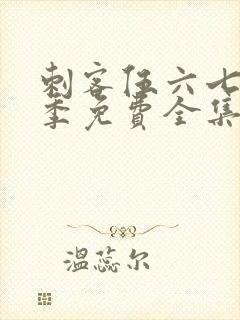 刺客伍六七
季免費全集
温蕊尔